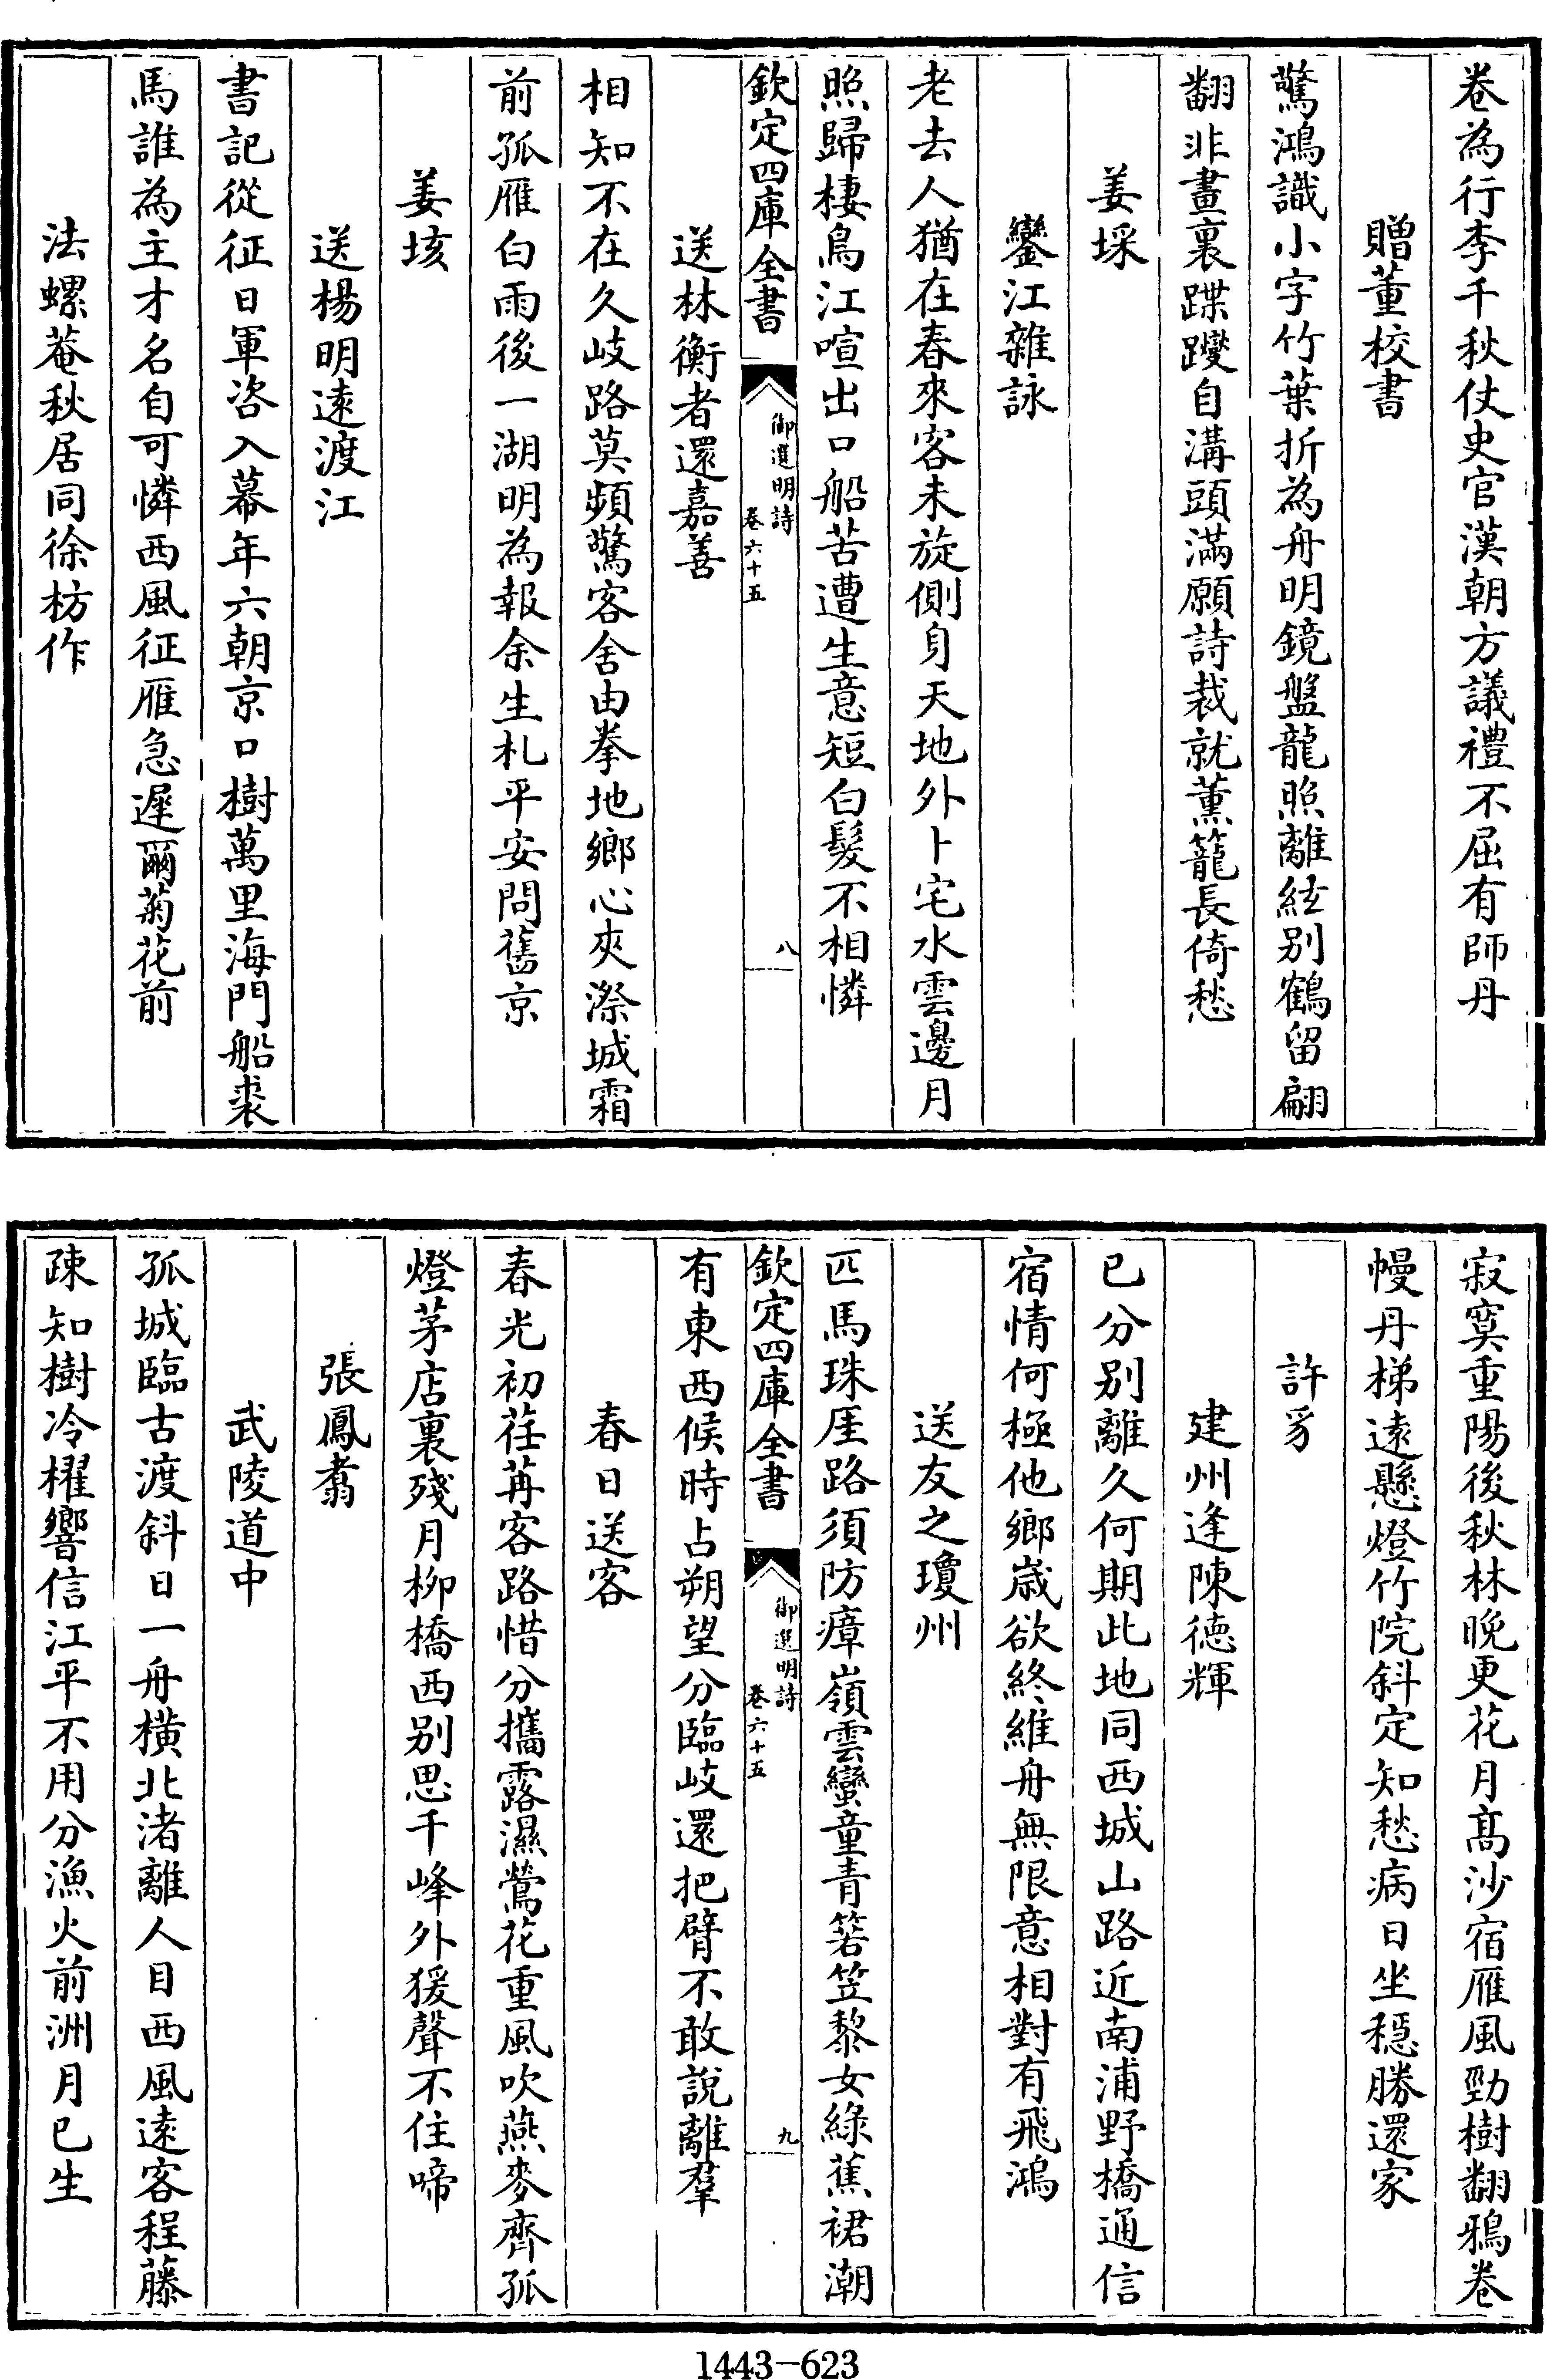 卷為行李千秋仗史官漢朝方議禮不屈有師丹
贈董校書
驚鴻識小字竹葉折為舟明鏡盤龍照離絃別鶴留翩
翻非畫裏蹀躞自溝頭滿願詩裁就薰籠長倚愁
姜埰
鑾江雜詠
老去人猶在春來客未旋側身天地外卜宅水雲邊月
照歸棲鳥江喧出口船苦遭生意短白髮不相憐
欽定四庫全書
御選明詩
卷六十五
八
送林衡者還嘉善
相知不在久岐路莫頻驚客舍由拳地鄉心夾漈城霜
前孤雁白雨後一湖明為報余生札平安問舊京
姜垓
送楊明遠渡江
書記從征日軍咨入幕年六朝京口樹萬里海門船裘
馬誰為主才名自可憐西風征雁急遲爾菊花前
法螺菴秋居同徐枋作
寂寞重陽後秋林晚更花月髙沙宿雁風勁樹翻鴉卷
幔丹梯遠懸燈竹院斜定知愁病日坐穩勝還家
許豸
建州逢陳德輝
已分別離久何期此地同西城山路近南浦野橋通信
宿情何極他鄉歳欲終維舟無限意相對有飛鴻
送友之瓊州
匹馬珠厓路須防瘴嶺雲蠻童青箬笠黎女綠蕉裙潮
欽定四庫全書
御選明詩
卷六十五
九
有東西候時占朔望分臨岐還把臂不敢說離羣
春日送客
春光初荏苒客路惜分攜露濕鶯花重風吹燕麥齊孤
燈茅店裏殘月柳橋西別思千峰外猨聲不住啼
張鳳翥
武陵道中
孤城臨古渡斜日一舟橫北渚離人目西風遠客程藤
疎知樹冷櫂響信江平不用分漁火前洲月已生
1443-623